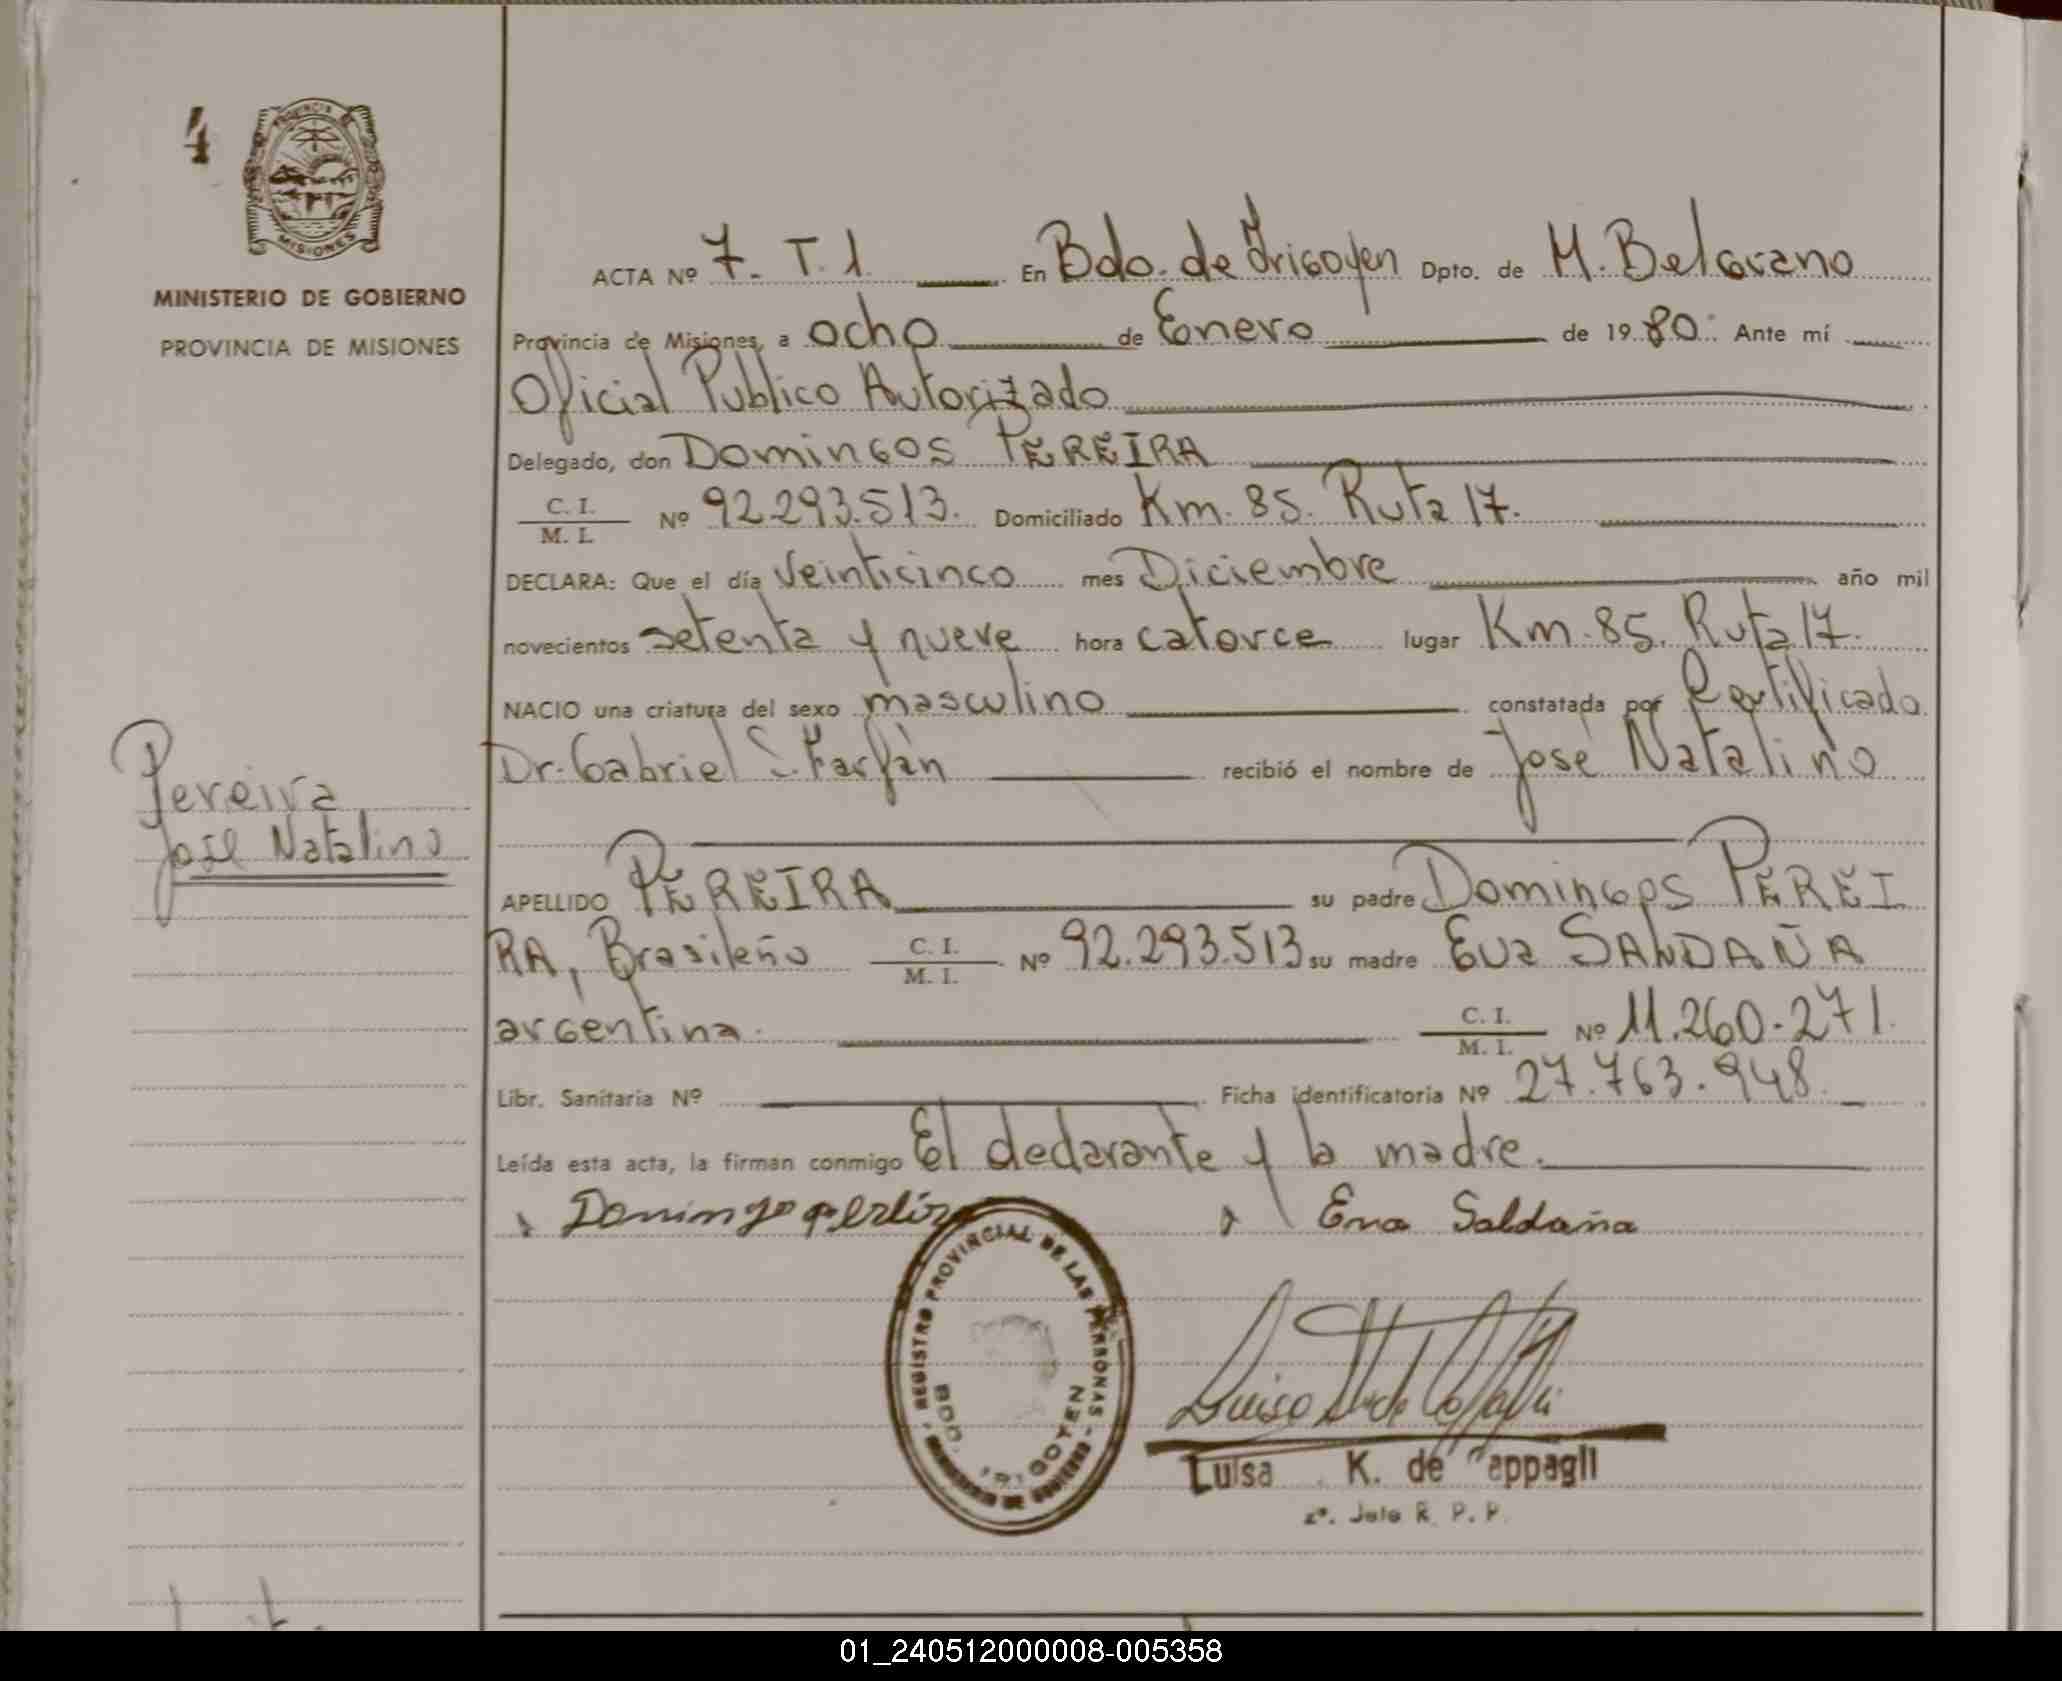 4
PROVINCIA DE
MISIONES
MINISTERIO DE GOBIERNO
PROVINCIA DE MISIONES
ACTA Nº 7. T. 1. En Bdo. de Irigoyen Dpto. de M. Belgrano
Provincia de Misiones, a ocho de Enero de 19 80. Ante mí
Oficial Publico Autorizado
Delegado, don Domingos PEREIRA
C. I. / M. I. Nº 92.293.513. Domiciliado Km. 85. Ruta 17.
DECLARA: Que el día veinticinco mes Diciembre año mil
novecientos setenta y nueve hora catorce lugar Km. 85. Ruta 17.
NACIO una criatura del sexo masculino constatada por Certificado
Dr. Gabriel S. Farfán recibió el nombre de José Natalino
Pereira
José Natalino
APELLIDO PEREIRA su padre Domingos PEREI
RA, Brasileño C. I. / M. I. Nº 92.293.513 su madre Eva SALDAÑA
argentina. C. I. / M. I. Nº 11.260.271.
Libr. Sanitaria Nº Ficha identificatoria Nº 27.763.948.
Leída esta acta, la firman conmigo El declarante y la madre.
Eva Saldaña
REGISTRO PROVINCIAL DE LAS PERSONAS
MINISTERIO DE GOBIERNO
BDO. IRIGOYEN
Luisa K. de Cappagli
2º. Jefe R. P. P.
01_240512000008-005358